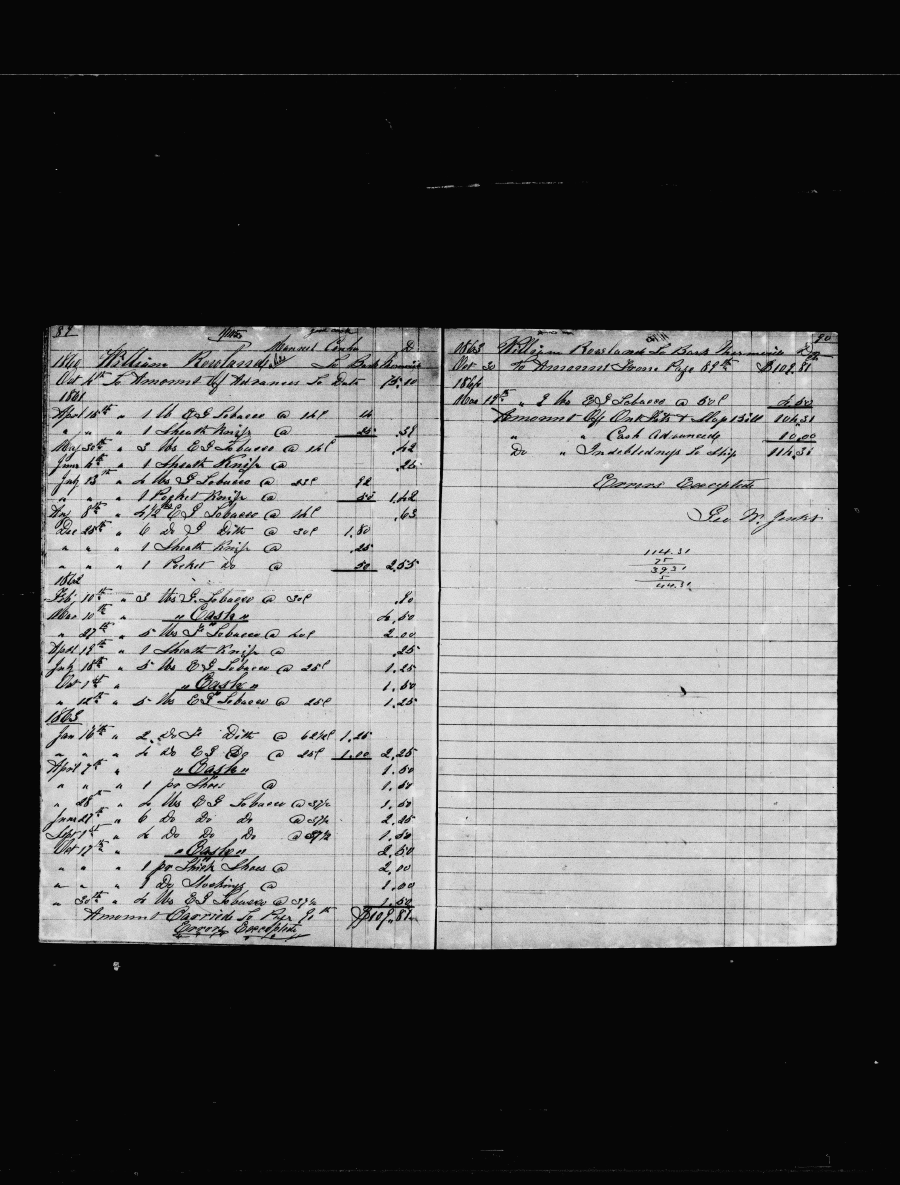 89
Manuel
1860 William Rowlands To Bark
Oct To Amount Of Advances To Date
1861
April 15th " 1 lb E J Tobacco @ 14¢ 14
" " " 1 Sheath Knife @ 25 .39
May 30th " 3 lbs E J Tobacco @ 14¢ .42
June " 1 Sheath Knife @ .25
July 13th " 4 lbs E J Tobacco @ 23¢ 92
" " " 1 Pocket Knife @ 50 1.42
" 4 1/2 lbs E J Tobacco @ 14¢ .63
Dec 25th " 6 Do J Ditto @ 30¢ 1.80
" " " 1 Sheath Knife @ .25
" " " 1 Pocket Do @ 50 2.55
1862
Feb 10th " 3 lbs J Tobacco @ 30¢ .90
Mar 10th " " Cash " 4.50
" 27th " 5 lbs Tobacco @ 40¢ 2.00
April 19th " 1 Sheath Knife @ .25
July 18th " 5 lbs E J Tobacco @ 25¢ 1.25
Oct 1st " " Cash " 1.50
" 12th " 5 lbs E J Tobacco @ 25¢ 1.25
1863
Jan 16th " 2 Do Ditto @ 62 1/2¢ 1.25
" " " 4 Do E J Do @ 25¢ 1.00 2.25
April 7th " " Cash " 1.50
" " " 1 pr Shoes @ 1.50
" 28th " 4 lbs E J Tobacco @ 37 1/2 1.50
June 27th " 6 Do Do Do @ 37 1/2 2.25
Sept 1st " 4 Do Do Do @ 37 1/2 1.50
Oct 17th " " Cash " 2.50
" " " 1 pr Thick Shoes @ 2.00
" " " Do Stockings @ 1.00
" 30th " 4 lbs E J Tobacco @ 37 1/2 1.50
Amount Carried To Page 90th $109.81
Errors Excepted
90
1863 William Rowlands To Bark Dr
Oct 30 To Amount From Page 89th $109.81
Mar 19th " 9 lbs E J Tobacco @ 50¢ 4.50
Amount Off & Slop Bill 114.31
" " Cash Advanced 10.00
Do " Indebtedness To Ship
Errors Excepted
Geo W. Jenks
114.31
75
39.31
5
44.31